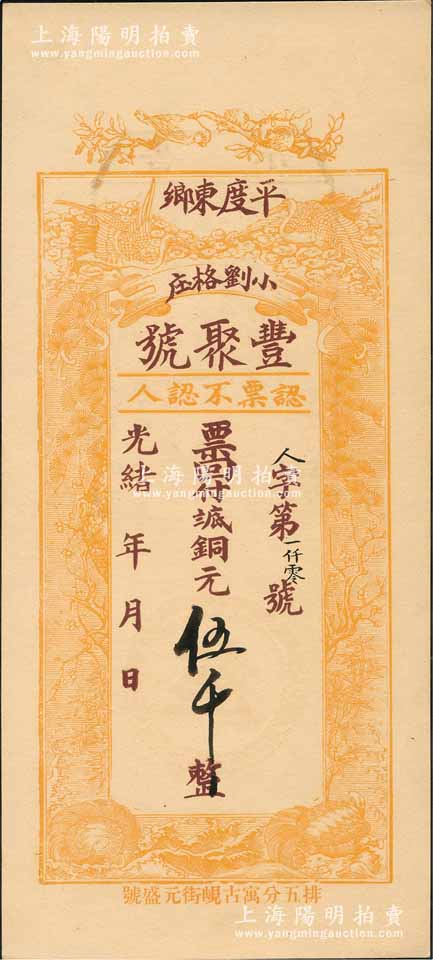 上海陽明拍賣
www.yangmingauction.com
平度東鄉
小劉格庄
豐聚號
認票不認人
人字第一仟零號
票存誆銅元伍千整
光緒 年 月 日
上海陽明拍賣
www.yangmingauction.com
排五分寓古峴街元盛號
上海陽明拍賣
www.yangmingauction.com